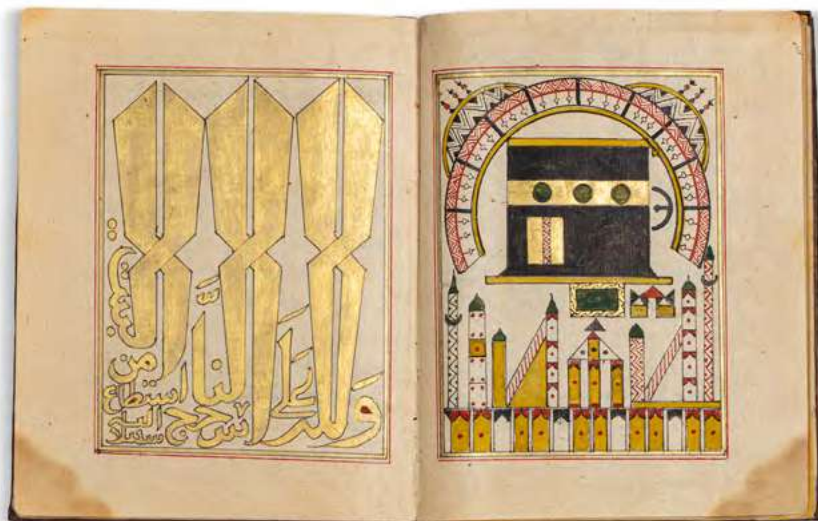 ولله على الناس حج البيت من استطاع اليه سبيلا